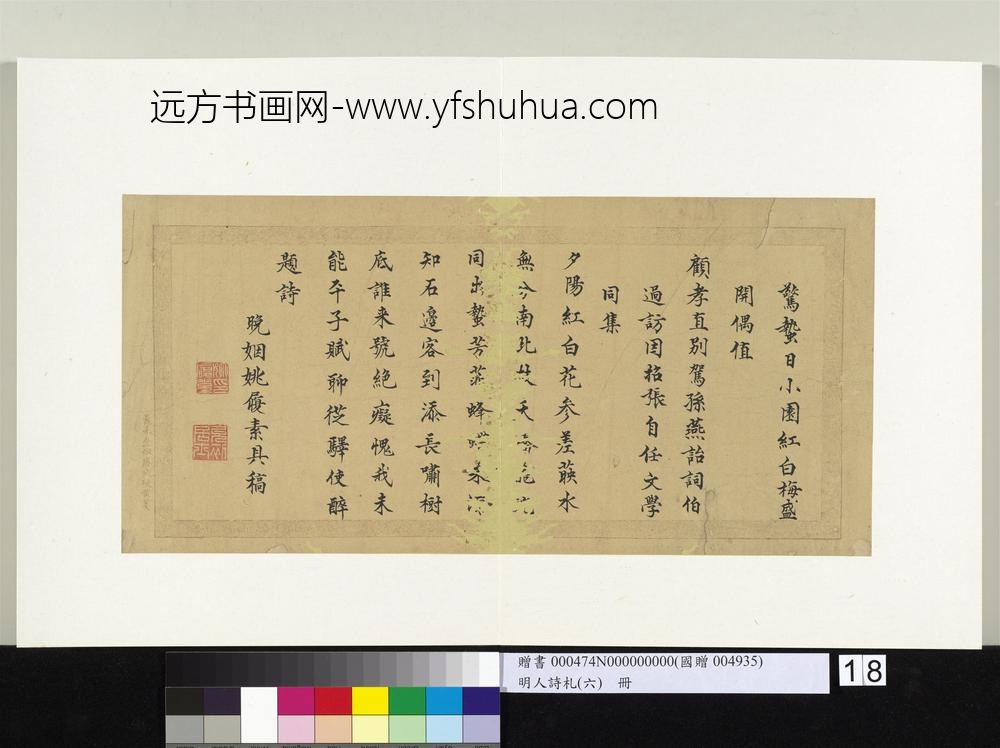 远方书画网-www.yfshuhua.com
驚蟄日小園紅白梅盛
開偶值
顧孝直別駕孫燕詒詞伯
過訪因招張自任文學
同集
夕陽紅白花參差蘸水
無分南北枝天
同出蟄芳菲蜂蝶未深
知石邊客到添長嘯樹
底誰来號絕癡愧我未
能平子賦聊從驛使醉
題詩
晚姻姚履素具稿
贈書 000474N000000000(國贈 004935)
明人詩札(六) 冊
18